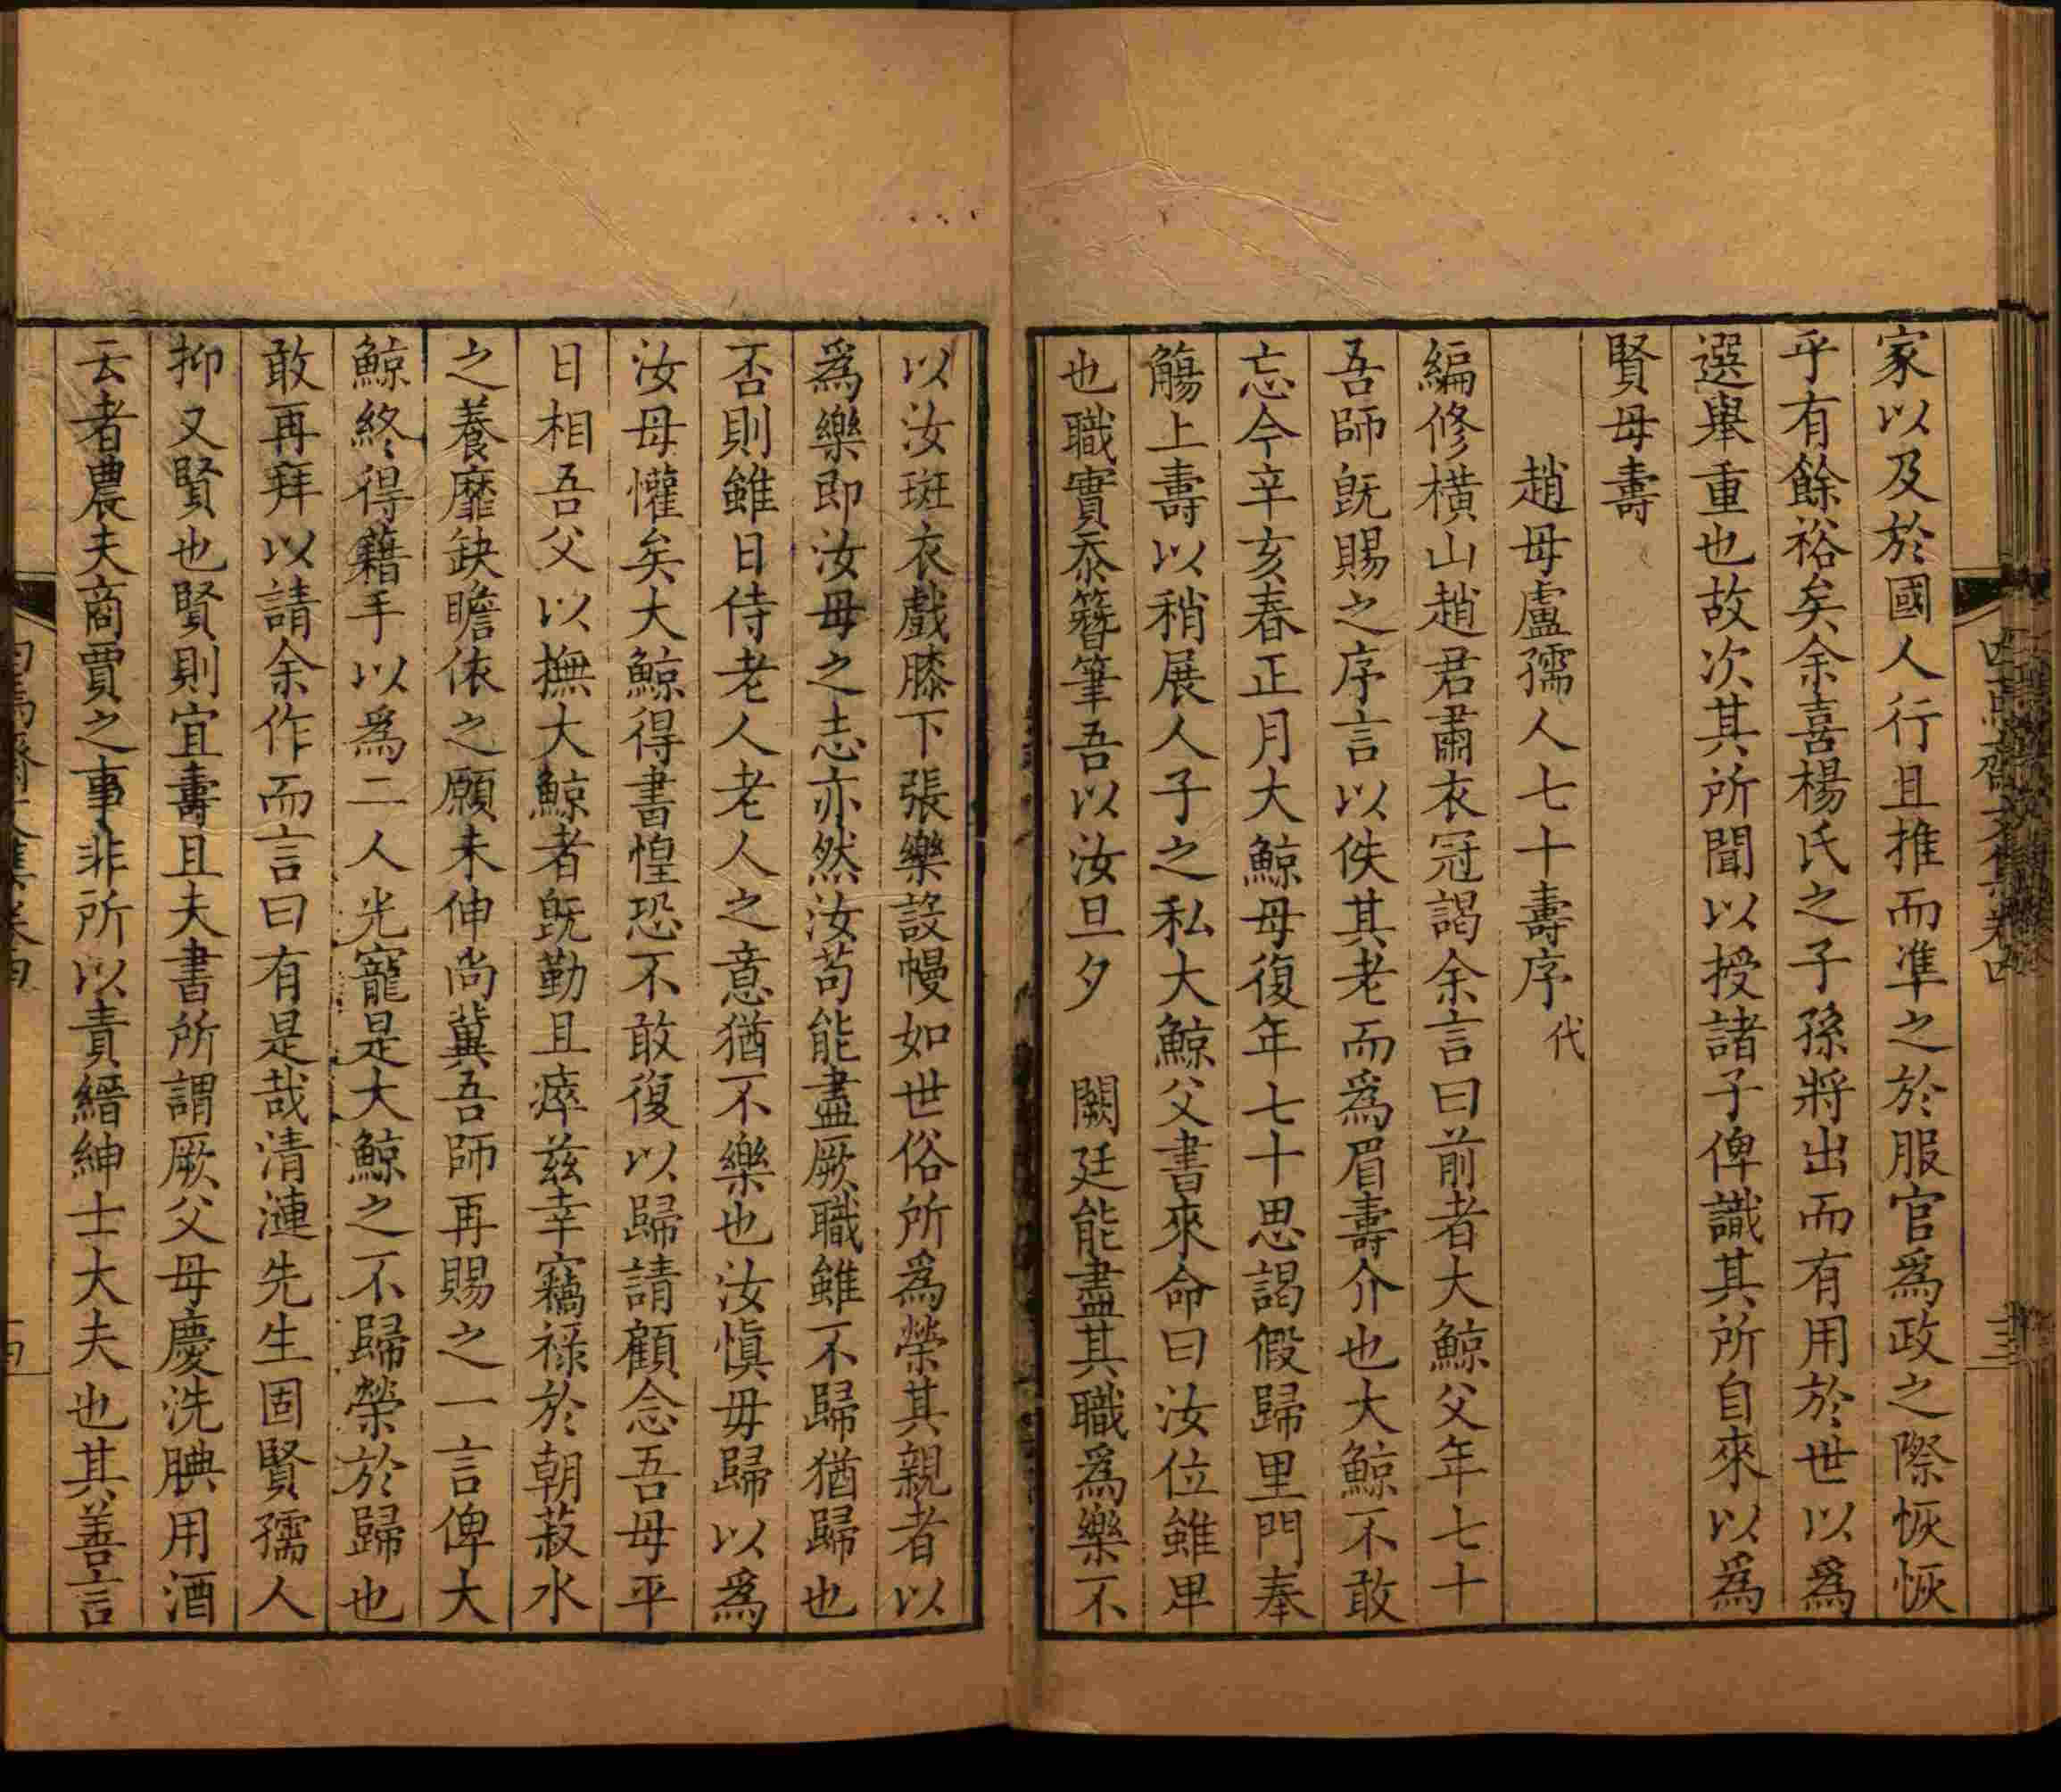 家以及於國人行且推而準之於服官爲政之際恢恢
乎有餘裕矣余喜楊氏之子孫將出而有用於世以爲
選舉重也故次其所聞以授諸子俾識其所自來以爲
賢母壽
趙母盧孺人七十壽序代
編修橫山趙君肅衣冠謁余言曰前者大鯨父年七十
吾師既賜之序言以佚其老而爲眉壽介也大鯨不敢
忘今辛亥春正月大鯨母復年七十思謁假歸里門奉
觴上壽以稍展人子之私大鯨父書來命曰汝位雖卑
也職實忝簪筆吾以汝旦夕 闕廷能盡其職爲樂不
以汝斑衣戲膝下張樂設幔如世俗所爲榮其親者以
爲樂即汝母之志亦然汝苟能盡厥職雖不歸猶歸也
否則雖日侍老人老人之意猶不樂也汝愼毋歸以爲
汝母懽矣大鯨得書惶恐不敢復以歸請顧念吾母平
日相吾父以撫大鯨者既勤且瘁兹幸竊祿於朝菽水
之養靡缺瞻依之願未伸尚冀吾師再賜之一言俾大
鯨終得藉手以爲二人光寵是大鯨之不歸榮於歸也
敢再拜以請余作而言曰有是哉清漣先生固賢孺人
抑又賢也賢則宜壽且夫書所謂厥父母慶洗腆用酒
云者農夫商賈之事非所以責縉紳士大夫也其善言